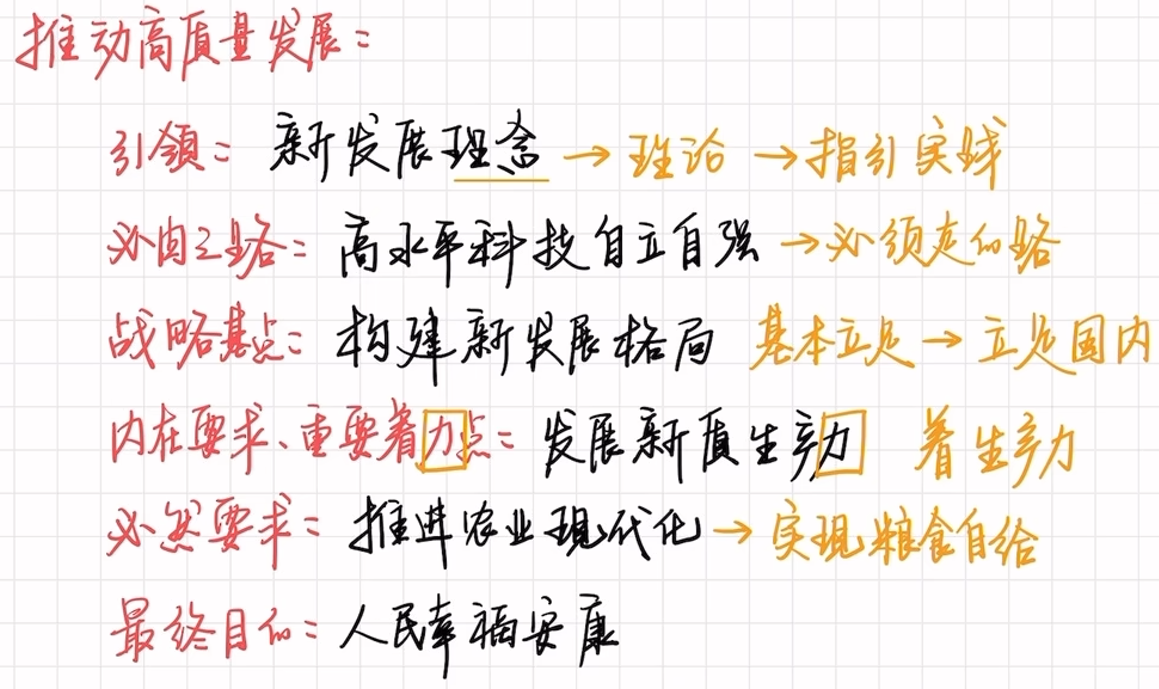 推动高质量发展：
引领：新发展理念→理论→指引实践
必由之路：高水平科技自立自强→必须走的路
战略基点：构建新发展格局 基本立足→立足国内
内在要求、重要着力点：发展新质生产力 着生产力
必然要求：推进农业现代化→实现粮食自给
最终目的：人民幸福安康